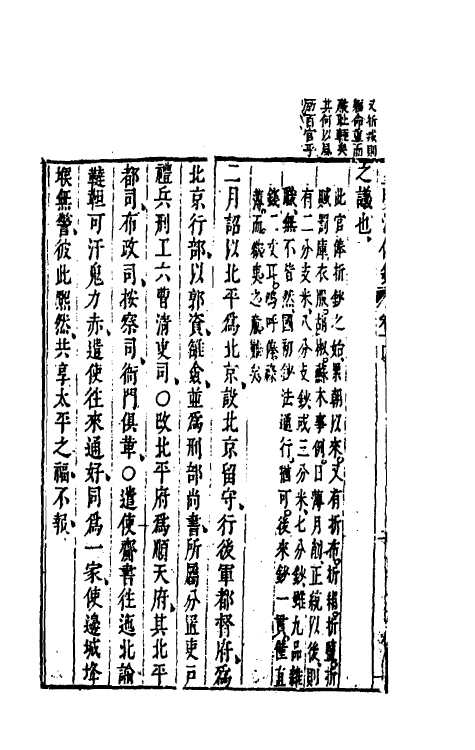 又折戎則
輕命重而
廉恥輕矣
其何以風
厲百官乎
之議也
此官俸折鈔之始累朝以來又有折布折絹折鹽折
賦罰庫衣服胡椒蘇木事例日薄月削正統以後則
有二分支米八分支鈔或三分米七分鈔雖九品雜
職無不皆然國初鈔法通行猶可後來鈔一貫僅直
錢二文耳嗚呼俸祿
薄而
二月詔以北平爲北京設北京留守行後軍都督府爲
北京行部以郭資雒僉並爲刑部尚書所屬分置吏戶
禮兵刑工六曹清吏司○改北平府爲順天府其北平
都司布政司按察司衙門俱革○遣使齎書往迤北諭
韃靼可汗鬼力赤遣使往來通好同爲一家使邊城烽
堠無警彼此熙然共享太平之福不報